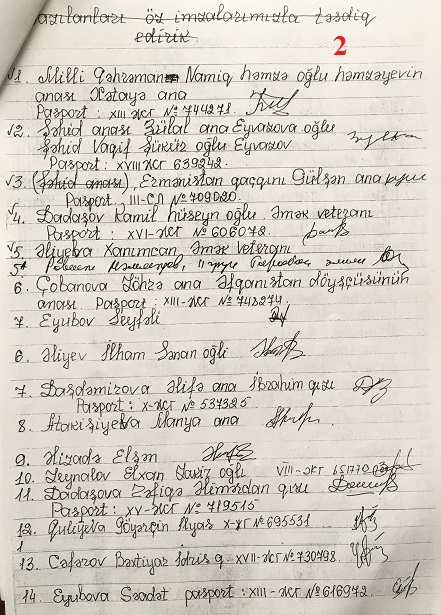 yazılanları öz imzalarımızla təsdiq
edirik.
2
√1. Milli Qəhrəman Namiq həmzə oğlu həmzəyevin
anası Xətayə ana
Pasport : XIII-ЖГ № 744271.
√2. Şəhid anası Zülal ana Eyvazova oğlu
Şəhid Vaqif Şükür oğlu Eyvazov
Pasport : XVIII-ЖГ 639242.
√3. (Şəhid anası), Ermənistan qaçqını Gülşən ana
Pasport, III-СЛ № 709020.
√4. Dadaşov Kamil hüseyn oğlu Əmək veteranı
Pasport : XVI-ЖГ № 606072.
√5. Əliyeva Xanımcan Əmək veteranı
5A
6. Çobanova Zöhrə ana Əfqanıstan döyşçüsünün
anası. Pasport : XIII-ЖГ № 748274.
7. Eyubov Seyfəli
6. Əliyev İlham Sənan oğli
7. Daşdəmirova Əlifə ana İbrahim qızı
Pasport : X-ЖГ № 537325
8. Manya ana
9. Əlizadə Elşən
10. Zeynalov Elxan Taviz oğlı VIII-ЖГ 651770
11. Dadaşova Rəfiqə Əlimərdan qızı
Pasport : XV-ЖГ № 719515
12. Quliyeva Göyərçin İlyas X-ЖГ № 695531
1
13. Cəfərov Bəxtiyar İdris q. XVII-ЖГ № 730798.
14. Eyubova Səadət pasport : XIII-ЖГ № 616972